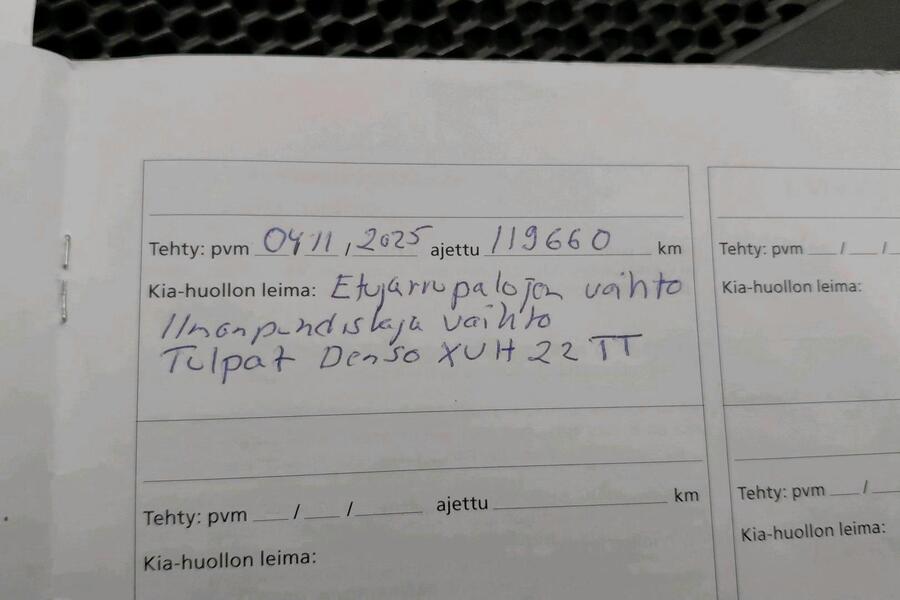 Tehty: pvm 04/11/2025 ajettu 119660 km
Kia-huollon leima: Etujarrupalojen vaihto
Ilmanpuhdistaja vaihto
Tulpat Denso XUH 22 TT
Tehty: pvm / / ajettu km
Kia-huollon leima:
Tehty: pvm / /
Kia-huollon leima:
Tehty: pvm /
Kia-huollon leima: